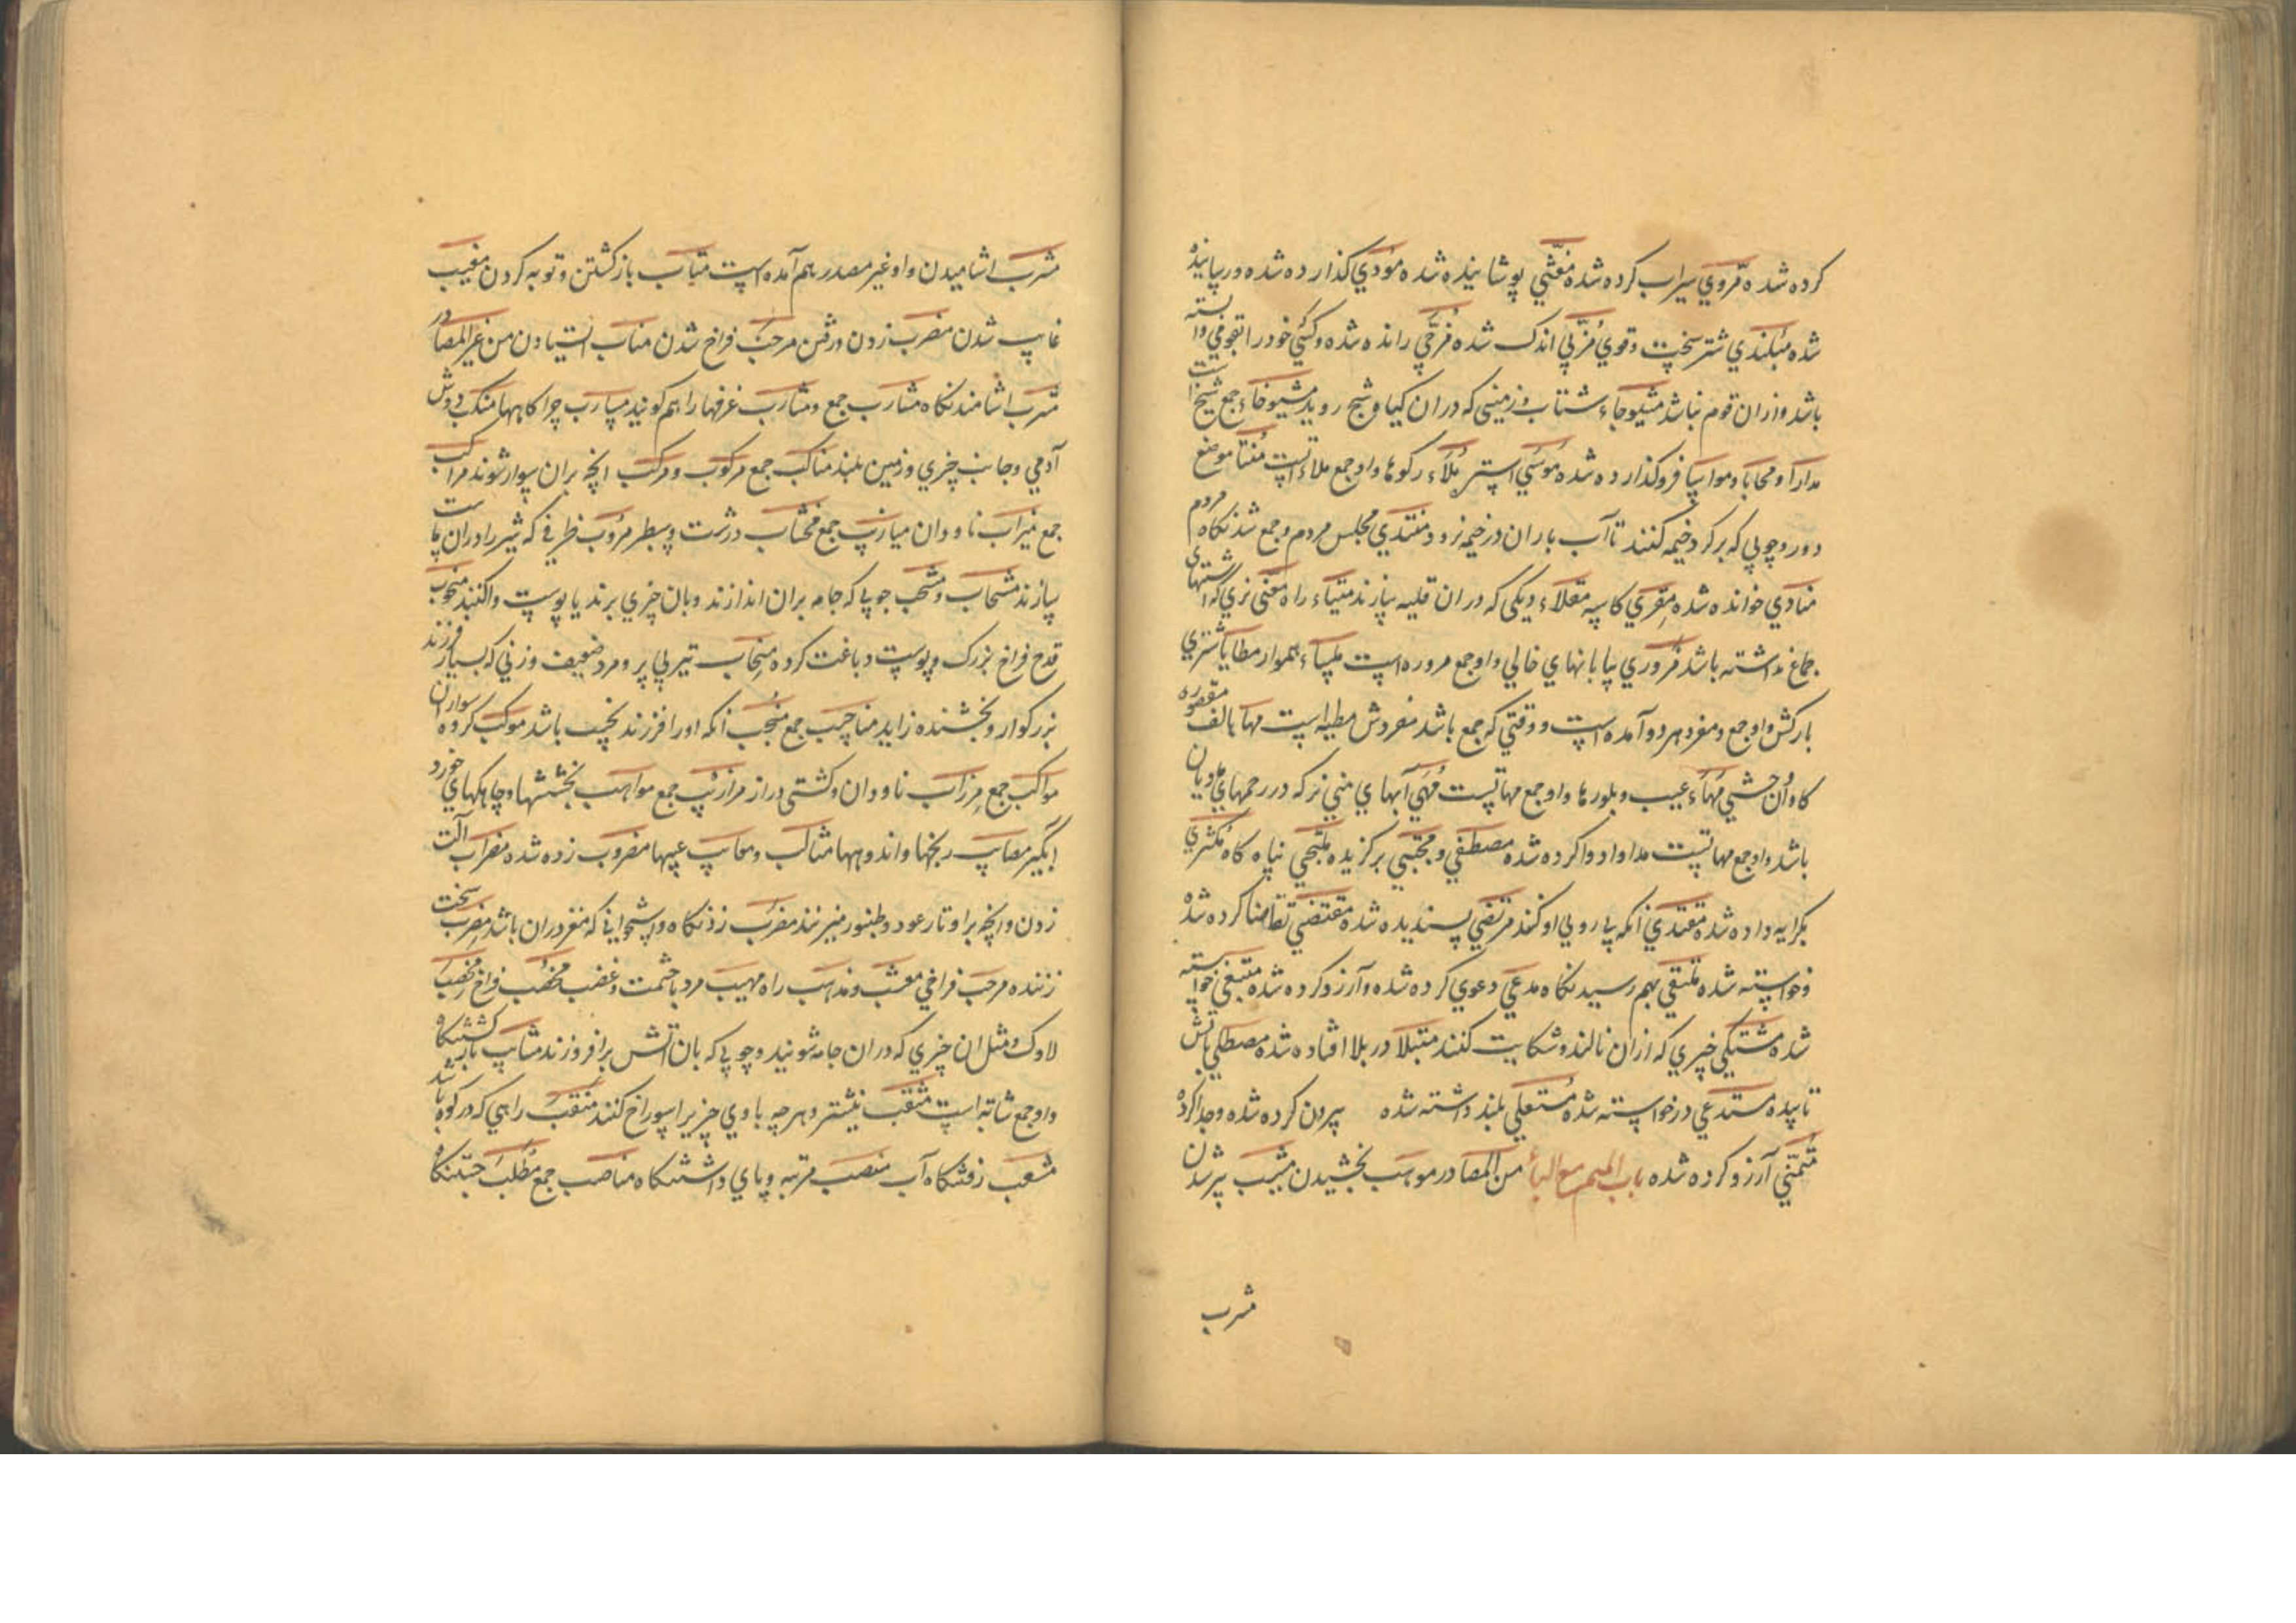 کرده شده مروي سیراب کرده شده مغشي پوشانیده شده مؤدي کذارده شده و رسانیده
شده مبلندي شتر سخت و قوي مزبي اندک شده مزجي رانده شده و کسي خود را بقومي وا بسته
باشد و از ان قوم نباشد مشیوحاء شتاب و زمینی که دران کیاه شیح روید مشیوخاء جمع شیخ است
مدارا و محابا و مواسا فرو کذارده شده موسي استر ملاء رکوها و او جمع ملاءتست منتا موضع
دور و چوبي که بر کرد خیمه کنند تا آب باران در خیمه نرود منتدي مجلس مردم و جمع شدنکاه مردم
منادي خوانده شده مقري کاسه مقلاء دیکی که دران قلیه سازند میتاء راه مغنی نري که اشتهای
جماع نداشته باشد مروري بیابانهاي خالي و او جمع مروره است ملساء هموار مطایا شتري
بارکش و او جمع و مفرد هر دو آمده است و وقتي که جمع باشد مفردش مطیه است مها بالف مقصوره
کاوان وحشي مهاء عیب و بلورها و او جمع مهاتست مهي آبهاي مني نر که در رحمهاي مادیان
باشد و او جمع مهاتست مداوا دوا کرده شده مصطفي و مجتبي برکزیده ملتجي پناه کاه مکتري
بکرایه داده شده مقتدي انکه پي روي او کنند مرتضي پسندیده شده مقتضي تقاضا کرده شده
و خواسته شده ملتقي بهم رسیدنکاه مدعي دعوي کرده شده و آرزو کرده شده مبتغي خواسته
شده مشتکي چیزي که از ان نالند و شکایت کنند مبتلا در بلا افتاده شده مصطلي باتش
تابیده مستدعي درخواسته شده مستعلي بلند داشته شده بیرون کرده شده و جدا کرده
متمني آرزو کرده شده باب المیم مع الباء من المصادر موهب بخشیدن مشیب پیر شدن
مشرب
مشرب اشامیدن و او غیر مصدر هم آمده است متاب بازکشتن و توبه کردن مغیب
غایب شدن مضرب زدن و رفتن مرحب فراخ شدن مناب ایستادن من غیر المصادر
مشرب اشامیدنکاه مشارب جمع و مشارب غرفها را هم کویند مسارب چراکاهها منکب دوش
آدمي و جانب چیزي و زمین بلند مناکب جمع مرکوب و مرکب انچه بران سوار شوند مراکب
جمع میزاب ناودان میازیب جمع مخشاب درشت و سطبر مروب ظرفي که شیر را دران ماست
سازند مشحاب و مشحب چوبي که جامه بران اندازند و بان چیزي برند یا پوست واکنند منجوب
قدح فراخ بزرک و پوست دباغت کرده منجاب تیر بي پر و مرد ضعیف و زني که بسیار فرزند
بزرکوار و بخشنده زاید مناجیب جمع منجب انکه او را فرزند نجیب باشد موکب کروه سواران
مواکب جمع مرزاب ناودان و کشتی دراز مرازیب جمع مواهب بخششها و چاهکهاي خورد
ابکیر مصایب رنجها و اندوهها مثالب و معایب عیبها مضروب زده شده مضراب آلت
زدن و انچه بر اوتار عود و طنبور میزنند مضرب زدنکاه و استخواني که مغز دران باشد مضرب سخت
زننده مرحب فراخي معشب و مذهب راه مهیب مرد باحشمت و غضب مخصب فراخ مخضب
لاوک و مثل ان چیزي که دران جامه شویند و چوبي که بان اتش برافروزند مثاب بازکشتنکاه
و او جمع مثابة است مثقب نیشتر و هر چه با وي چیزیرا سوراخ کنند منقب راهي که در کوه باشد
مثعب رفتنکاه آب منصب مرتبه و پاي داشتنکاه مناصب جمع مطلب جستنکاه